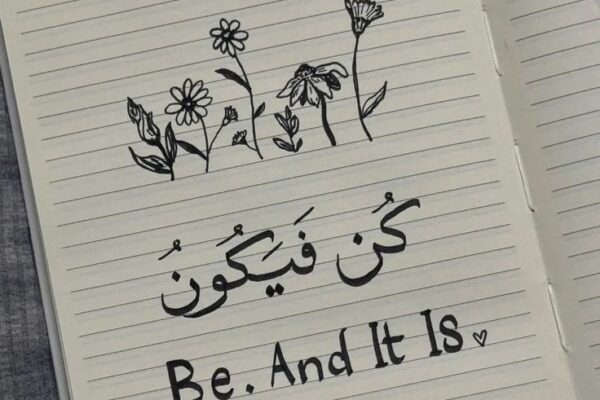 كُن فَيَكُونُ
Be. And It Is